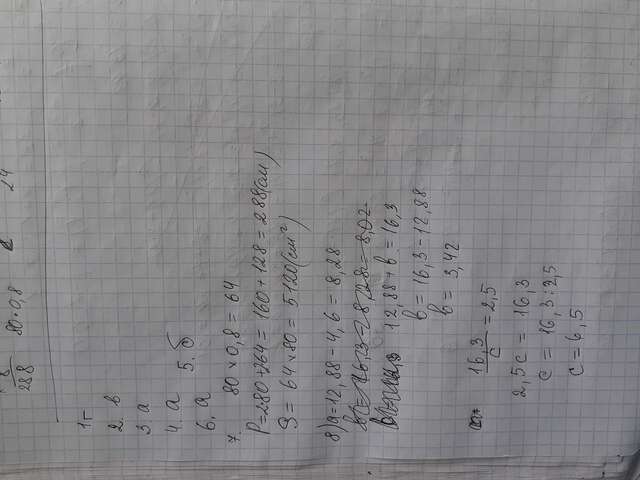 288
80·0,8
24
1г
2. в
3. а
4. а
6. а 5. б
7. 80 × 0,8 = 64
P = 2·80+2·64 = 160 + 128 = 288(см)
S = 64 × 80 = 5120(см²)
8) а = 12,88 - 4,6 = 8,28
12,88 + в = 16,3
в = 16,3 - 12,88
в = 3,42
16,3/с = 2,5
2,5с = 16,3
с = 16,3 : 2,5
с = 6,5